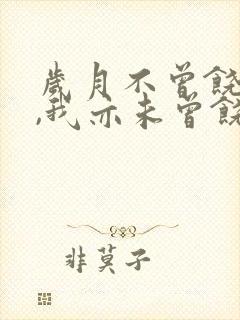 歲月不曾饒
,我亦未曾饒
非莫子